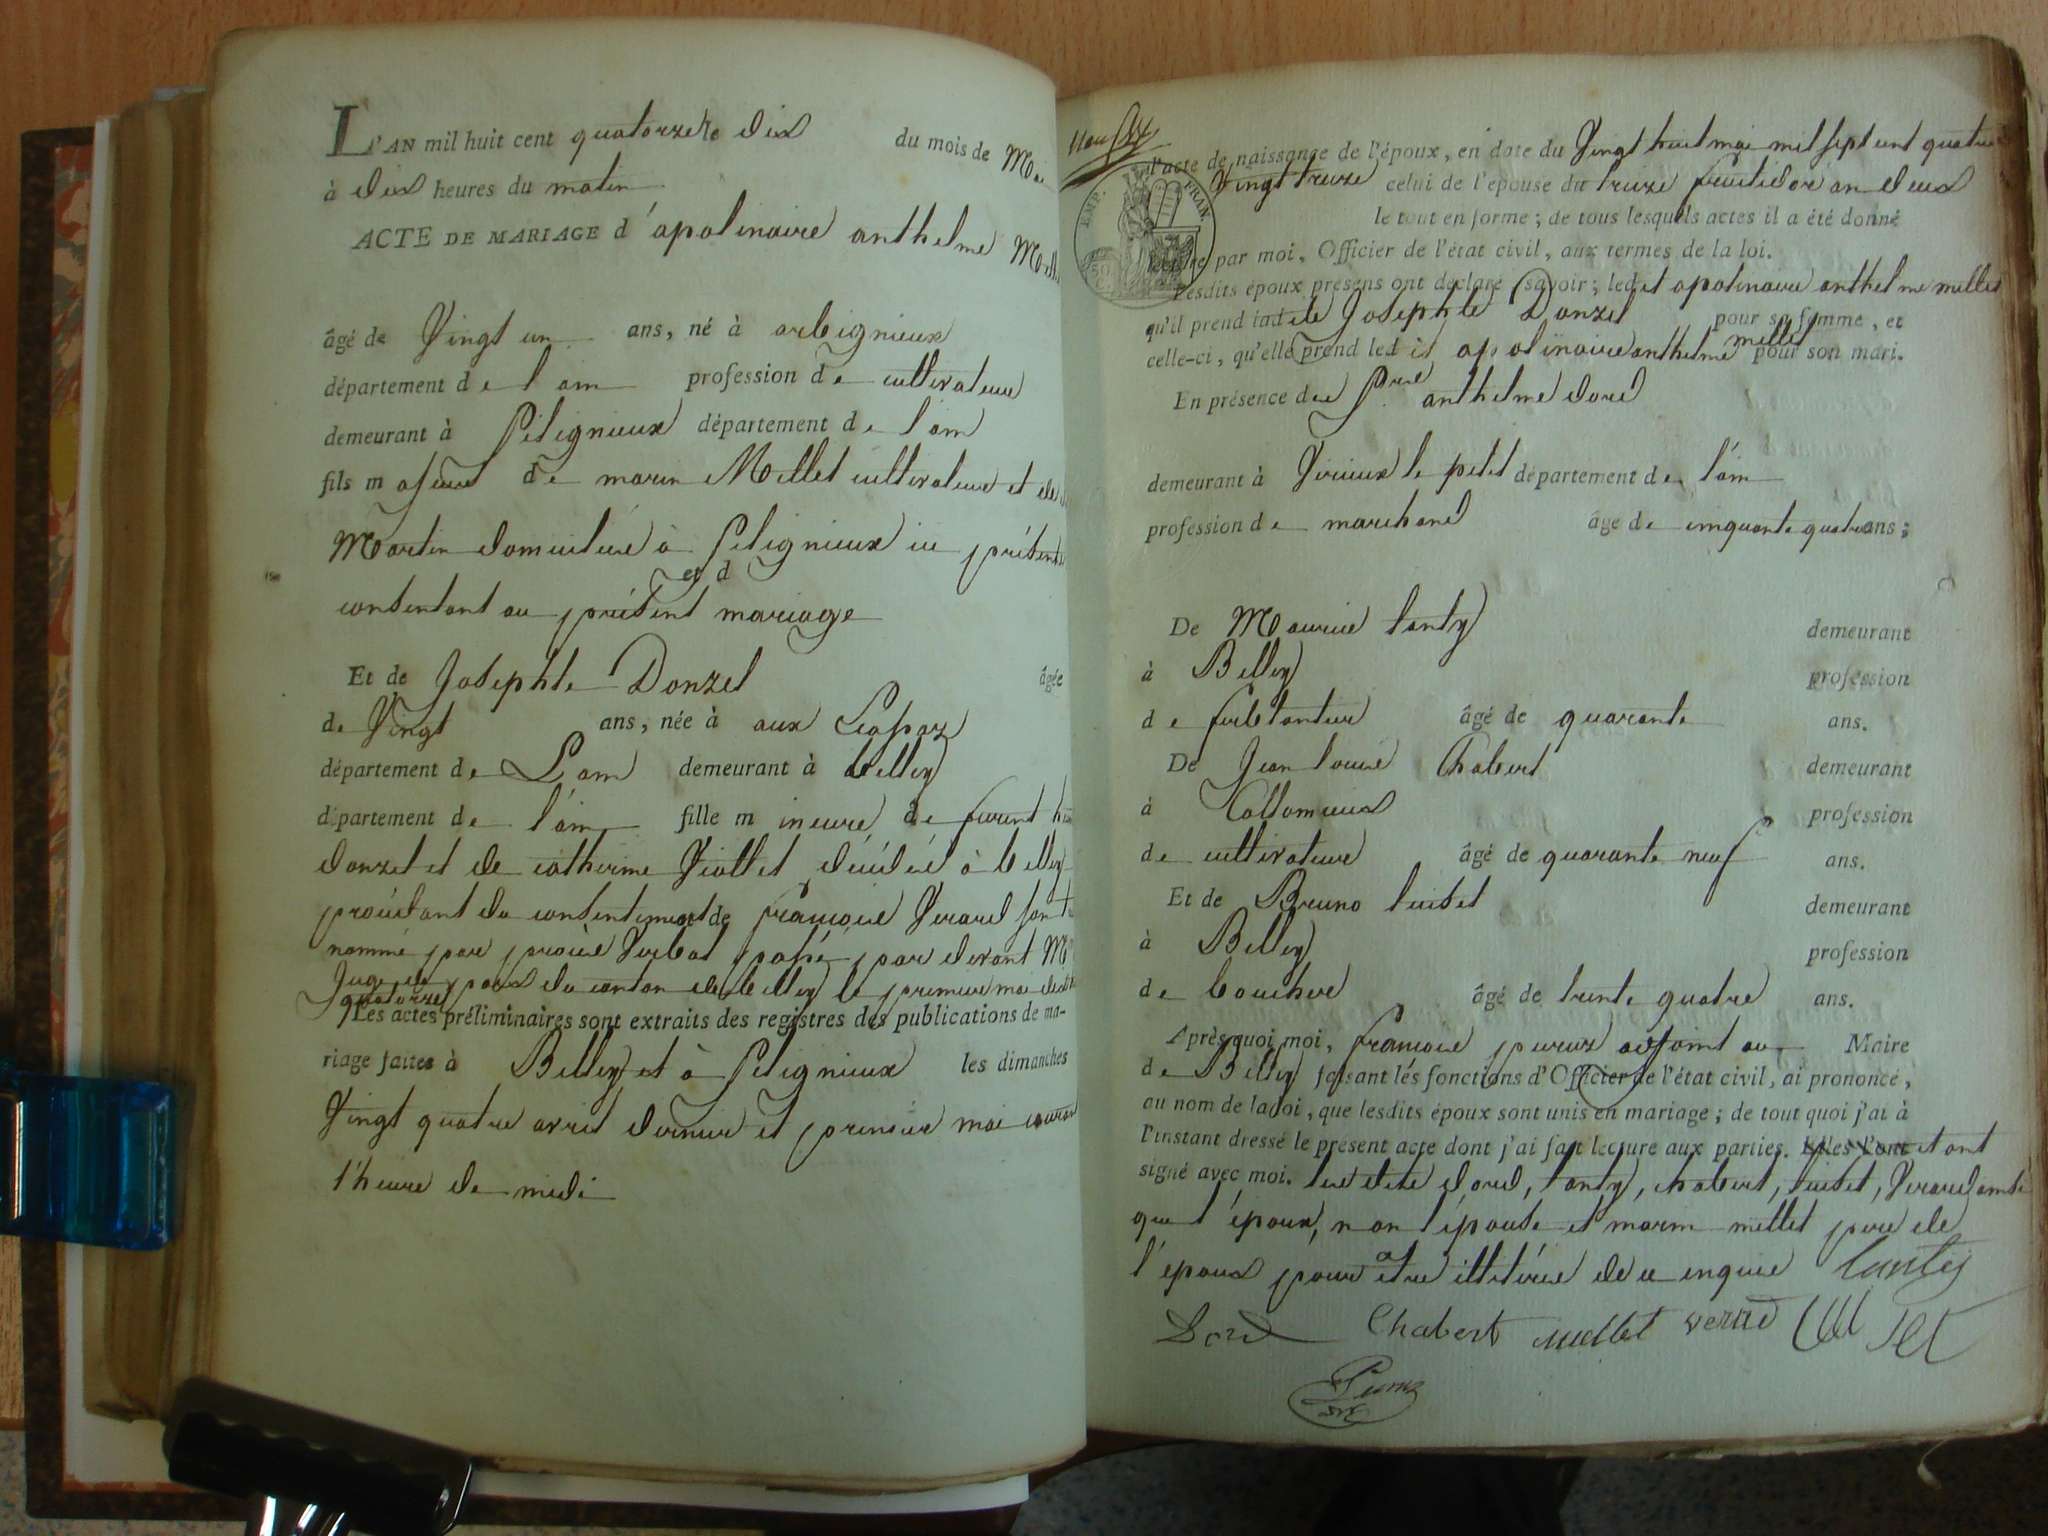 L'AN mil huit cent quatorze le dix du mois de Mai
à dix heures du matin
ACTE DE MARIAGE d'apolinaire anthelme
âgé de Vingt un ans, né à arbignieux
département de l'ain profession de cultivateur
demeurant à Pelignieux département de l'ain
fils majeur de marin Millet cultivateur et de
Martin domicilié à Pelignieux ici présents
et d
consentant au présent mariage
Et de Josephte Donzel âgée
de Vingt ans, née à aux
département de L'ain demeurant à belley
département de l'ain fille mineure de furent
donzel et de catherine Viollet décédés à belley
procédant du consentement de françois Verard son
nommé par procès Verbal passé par devant Mr
Juge de paix du canton de belley le premier mai
quatorze
Les actes préliminaires sont extraits des registres des publications de ma-
riage faites à Belley et à Pelignieux les dimanches
Vingt quatre avril dernier et premier mai courant
l'heure de midi
l'acte de naissance de l'époux, en date du Vingt huit mai mil sept cent quatre
Vingt treize celui de l'épouse du treize fructidor an deux
EMP. FRAN
le tout en forme ; de tous lesquels actes il a été donné
lecture par moi, Officier de l'état civil, aux termes de la loi.
Lesdits époux présens ont déclaré savoir ; ledit apolinaire anthelme millet
qu'il prend ladite Josephte Donzel pour sa femme, et
millet
celle-ci, qu'elle prend ledit apolinaire anthelme pour son mari.
En présence de anthelme dord
demeurant à Virieux le petit département de l'ain
profession de marchand âgé de cinquante quatre ans ;
De Maurice tanty demeurant
à Belley profession
de ferblantier âgé de quarante ans.
De Jean louis Chabert demeurant
à Collomieux profession
de cultivateur âgé de quarante neuf ans.
Et de Bruno tuitet demeurant
à Belley profession
de boucher âgé de trente quatre ans.
Après quoi moi, françois adjoint au Maire
de Belley faisant les fonctions d'Officier de l'état civil, ai prononcé,
au nom de la loi, que lesdits époux sont unis en mariage ; de tout quoi j'ai à
l'instant dressé le présent acte dont j'ai fait lecture aux parties. Elles l'ont et ont
signé avec moi. dord, tanty, chabert, tuitet, Verard ainsi
que l'époux, non l'épouse et marin millet père de
l'époux pour être illitérés de ce enquis tanty
Dord Chabert millet